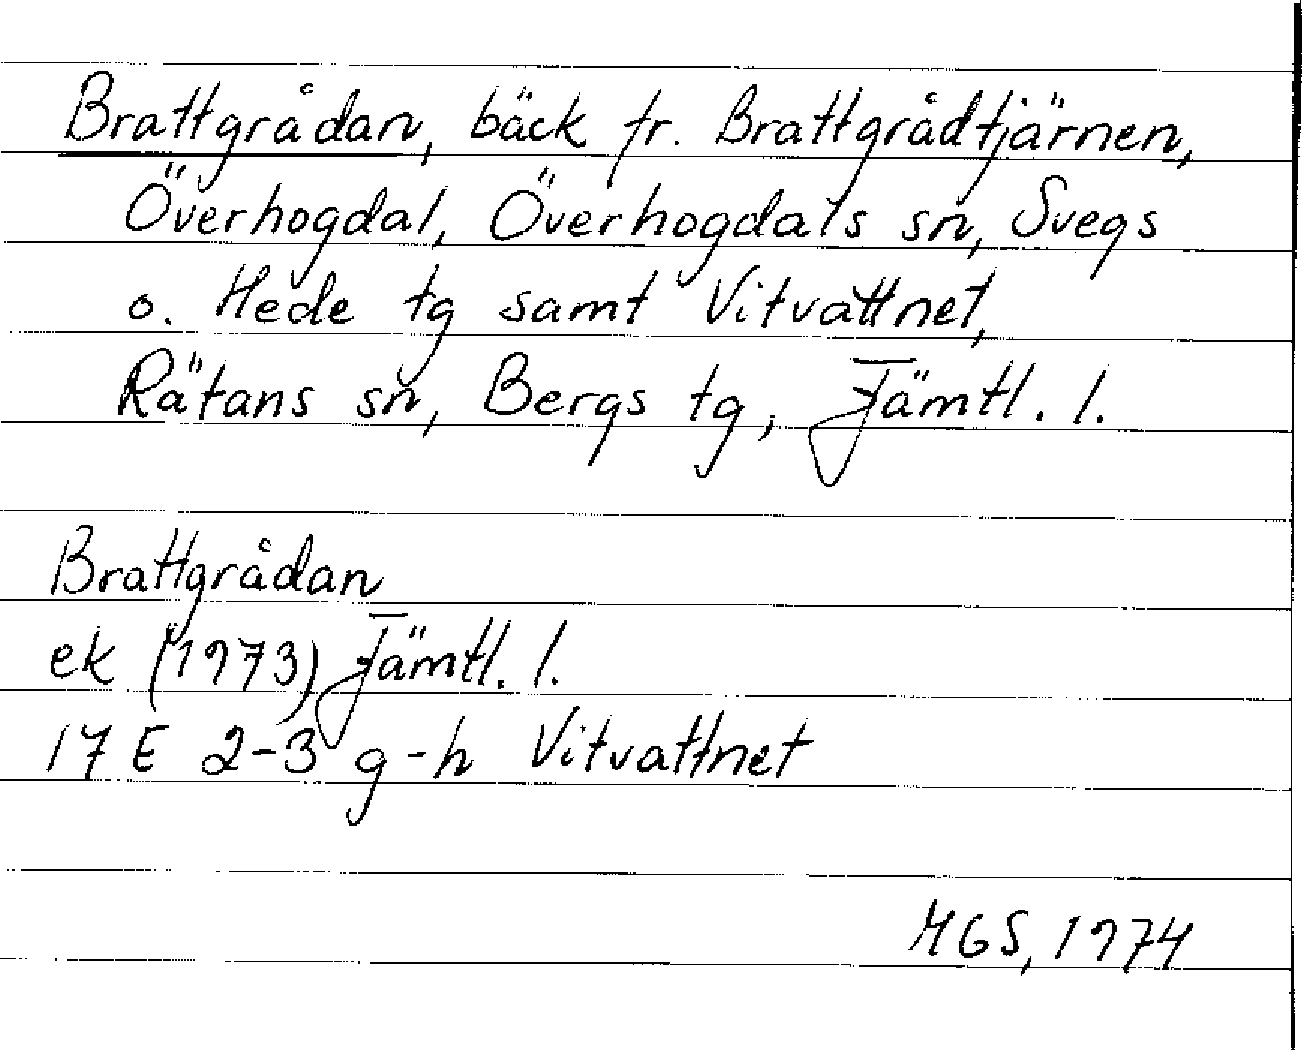 Brattgrådan, bäck fr. Brattgrådtjärnen,
Överhogdal, Överhogdals sn, Svegs
o. Hede tg samt Vitvattnet,
Rätans sn, Bergs tg, Jämtl. l.
Brattgrådan
ek (1973) Jämtl. l.
17 E 2-3 g-h Vitvattnet
MGS, 1974